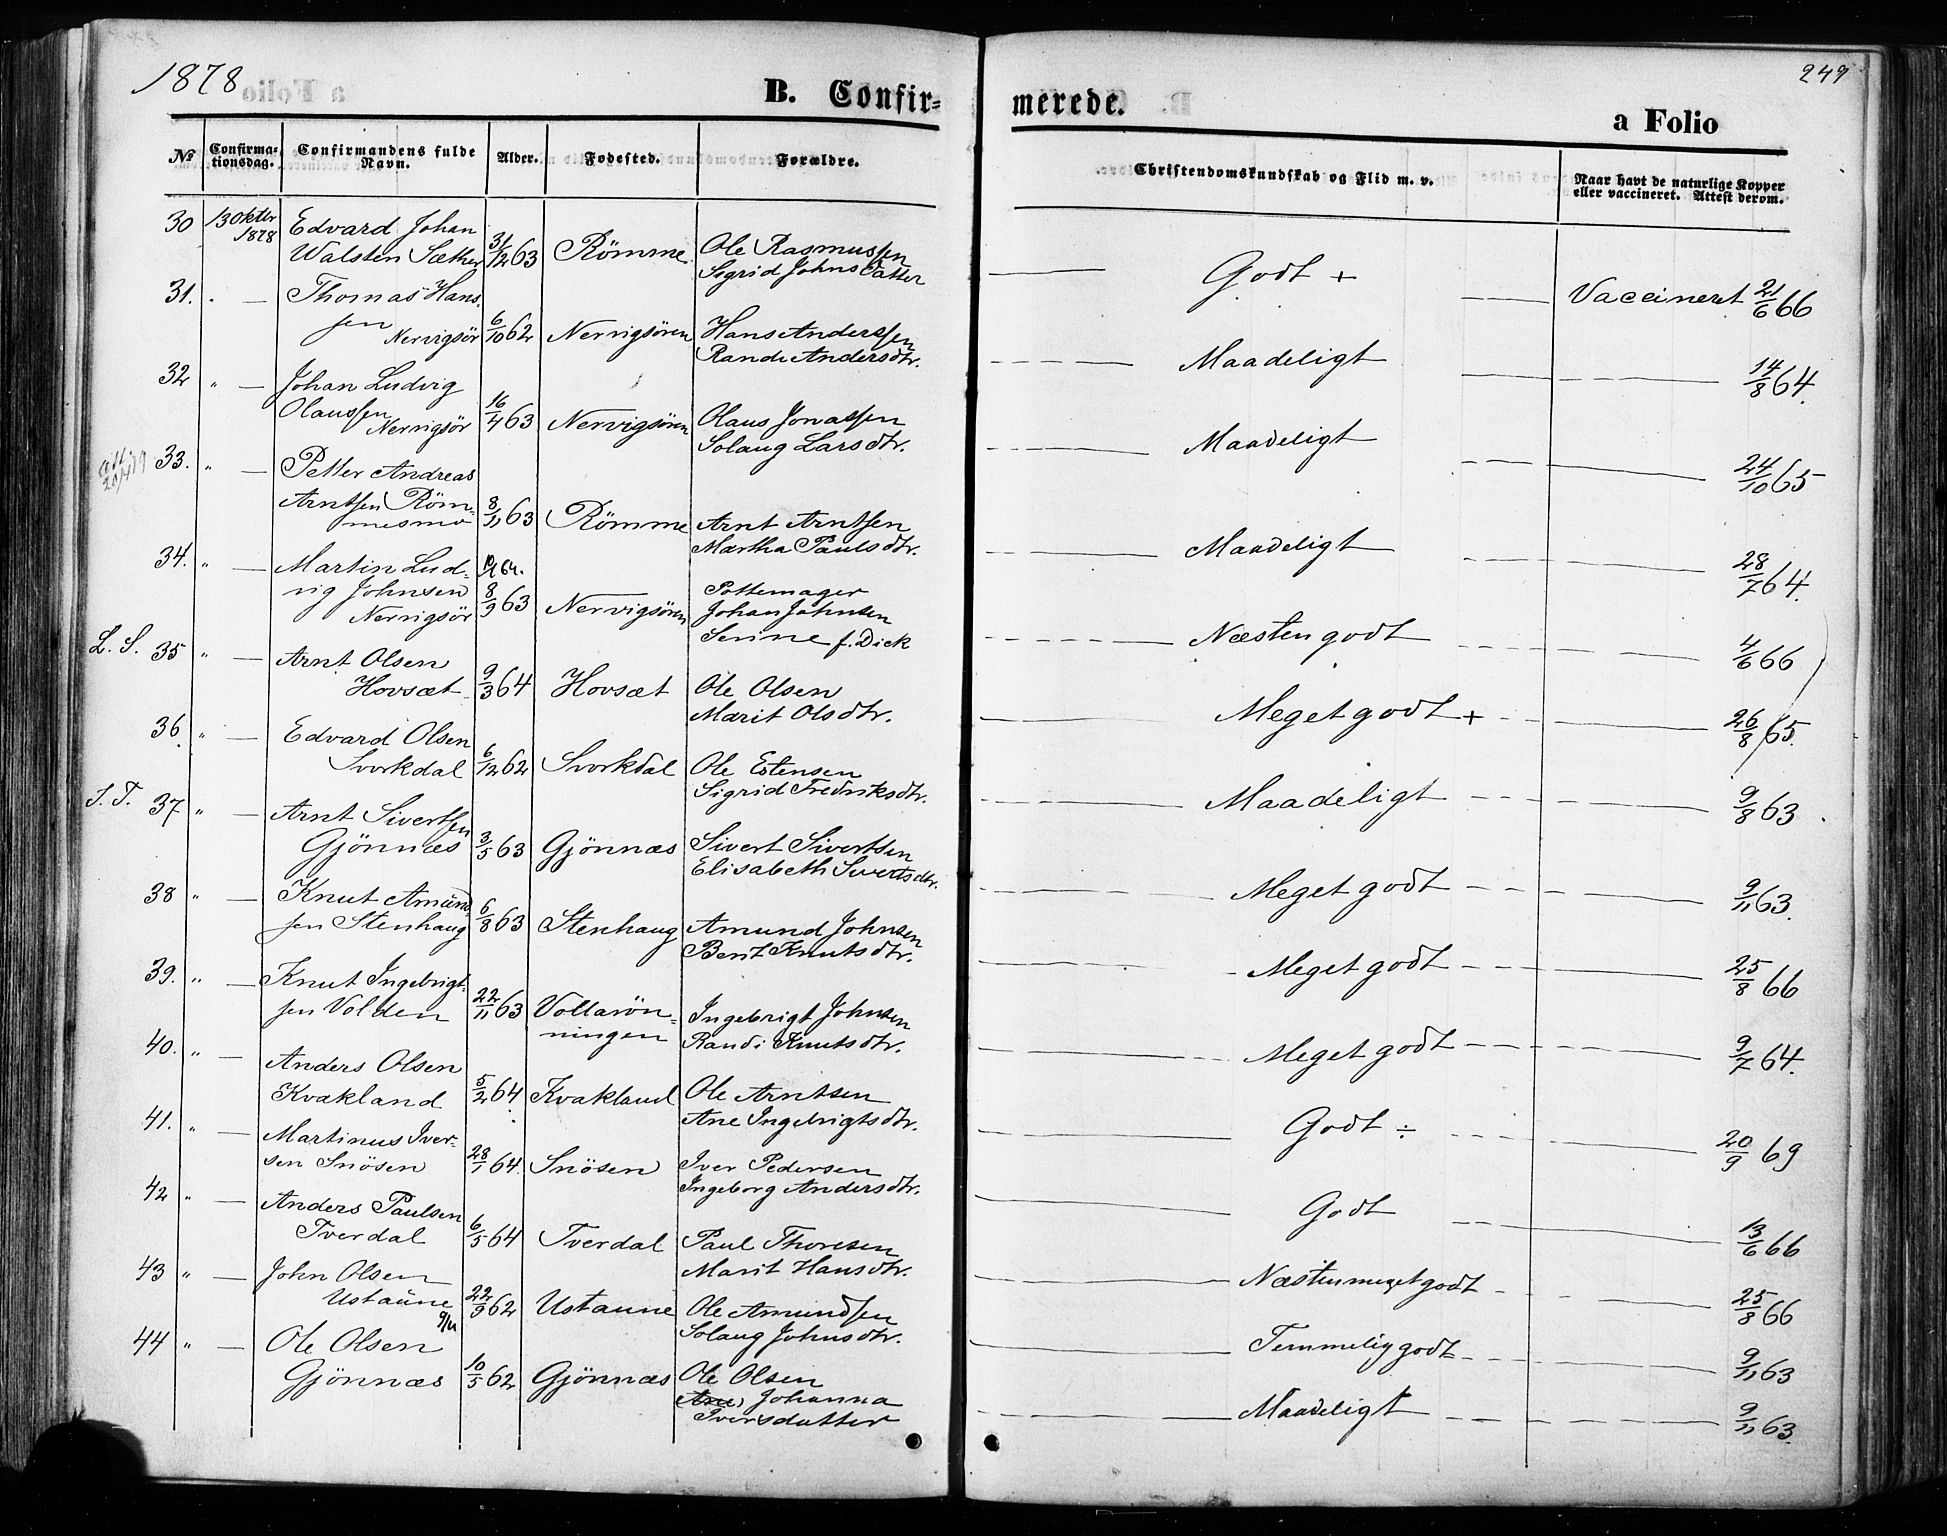 1878
B. Confir-
№ Confirma-tionsdag. Confirmandens fulde Navn. Alder. Fødested. Forældre.
30 13 Oktbr 1878 Edvard Johan
Walsten Sæther 31/12 63 Römme Ole Rasmussen
Sigrid Johnsdatter
31. " — Thomas Hans-
sen Nervigsör 6/10 62 Nervigsören Hans Anderssen
Randi Andersdtr.
32 " — Johan Ludvig
Olaussen Nervigsör 16/4 63 Nervigsören Olaus Jonassen
Solaug Larsdtr.
33. " — Petter Andreas
Arntsen Röm-
mesmo 8/11 63 Römme Arnt Arntsen
Martha Paulsdtr.
34. " — Martin Lud-
vig Johnsen
Nervigsör 8/9 63 Nervigsören Pottemager
Johan Johnsen
Serine f. Dick
L. S. 35 " — Arnt Olsen
Hovsæt 9/3 64 Hovsæt Ole Olsen
Marit Olsdtr.
36. " — Edvard Olsen
Svorkdal 6/12 62 Svorkdal Ole Estensen
Sigrid Fredriksdtr.
S. T. 37 " — Arnt Sivertsen
Gjönnæs 3/5 63 Gjönnæs Sivert Sivertsen
Elisabeth Sivertsdtr.
38 " — Knut Amund-
sen Stenhaug 6/8 63 Stenhaug Amund Johnsen
Berit Knutsdtr.
39. " — Knut Ingebrigt-
sen Volden 22/11 63 Vollarön-
ningen Ingebrigt Johnsen
Randi Knutsdtr.
40. " — Anders Olsen
Kvakland 5/2 64 Kvakland Ole Arntsen
Ane Ingebrigtsdtr.
41. " — Martinus Iver-
sen Snösen 28/1 64. Snösen Iver Pedersen
Ingeborg Andersdtr.
42 " — Anders Paulsen
Tverdal 6/5 64 Tverdal Paul Thoresen
Marit Hansdtr.
43 " — John Olsen
Ustaune 22/9 62 Ustaune Ole Amundsen
Solaug Johnsdtr.
44 " — Ole Olsen
Gjönnæs 10/5 62 Gjönnæs Ole Olsen
Johanna
Iversdatter
249
merede.
a Folio
Christendomskundskab og Flid m. v. Naar havt de naturlige Kopper eller vaccineret. Attest derom.
Godt + Vaccineret 21/6 66
Maadeligt 14/8 64.
Maadeligt 24/10 65
Maadeligt 28/7 64.
Næsten godt 4/6 66
Meget godt + 26/8 65.
Maadeligt 9/8 63
Meget godt 9/11 63.
Meget godt 25/8 66
Meget godt 9/7 64.
Godt ÷ 20/9 69
Godt 13/6 66
Næsten meget godt 25/8 66
Temmelig godt 9/11 63
Maadeligt 9/11 63.